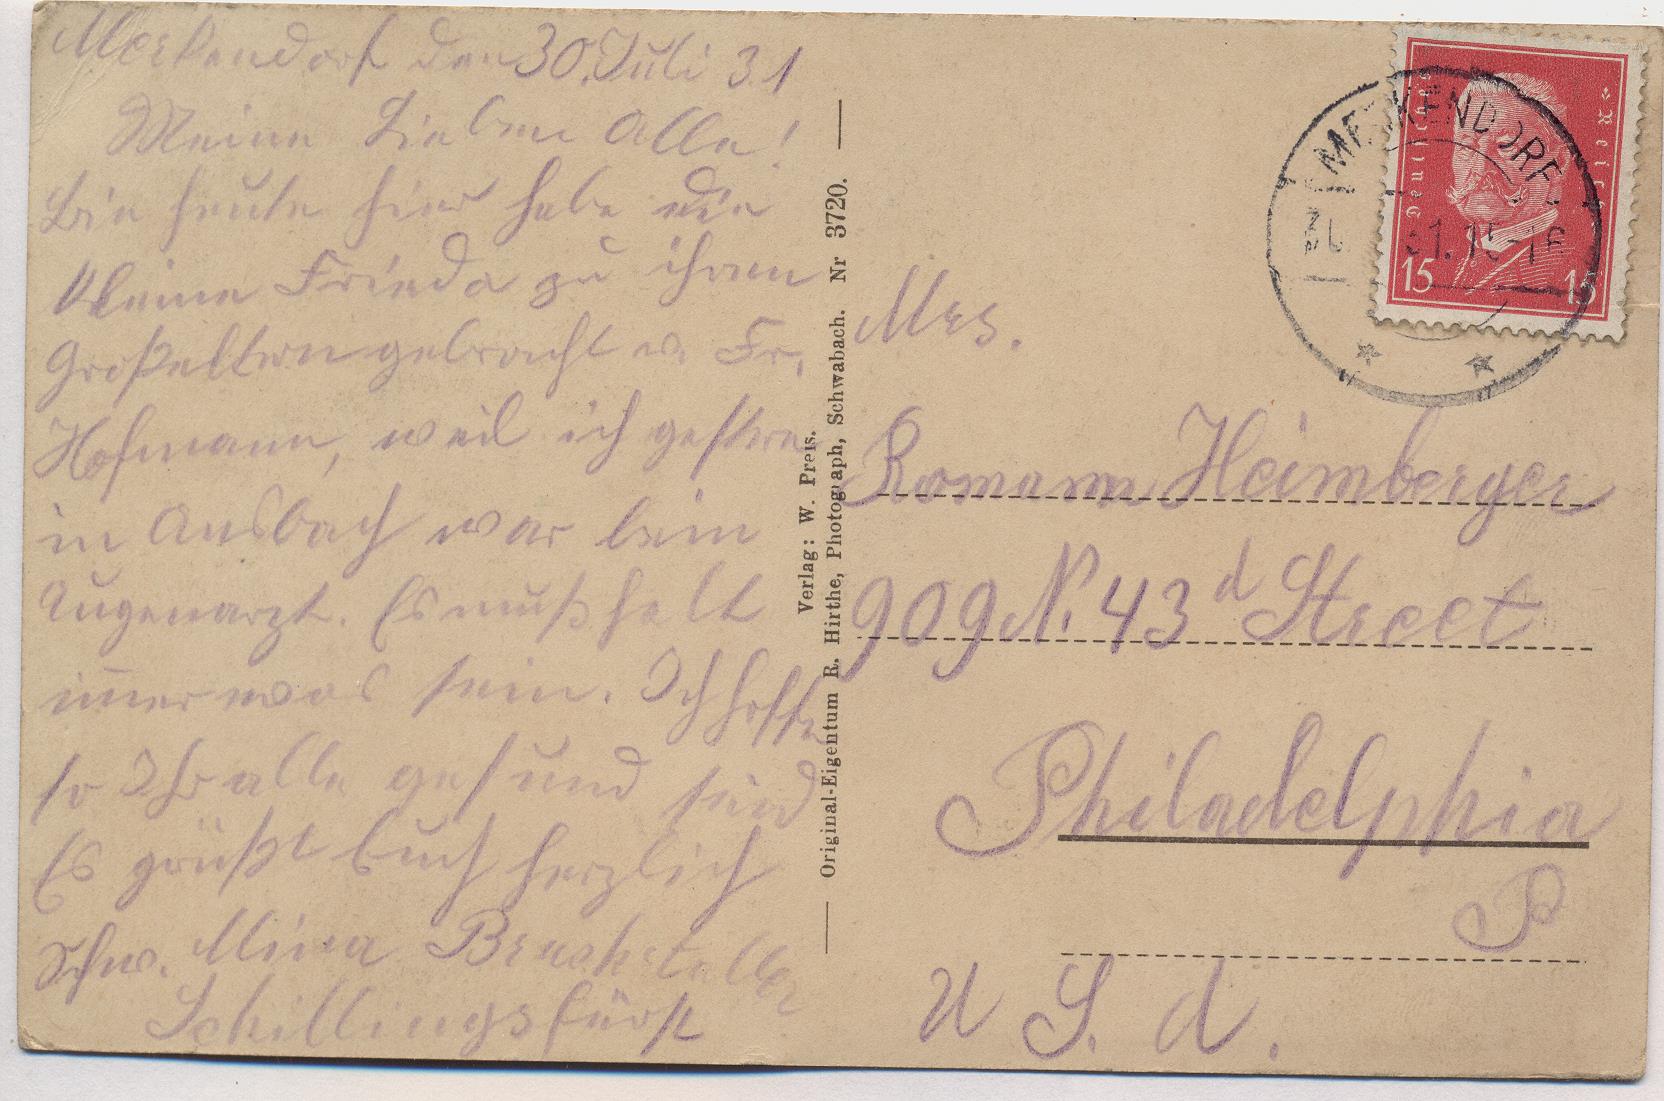 Merkendorf den 30. Juli 31
Meine Lieben Alle!
Bin heute hier habe die
kleine Frieda zu ihren
Großeltern gebracht u. Fr.
Hofmann, weil ich gestern
in Ansbach war beim
Augenarzt. Es muß halt
im̅er was sein. Ich hoffe
so Ihr alle gesund seid
Es grüßt Euch herzlich
Schw. Mina
Schillingsfürst
Verlag: W. Preis.
Original-Eigentum R. Hirthe, Photograph, Schwabach. Nr 3720.
Deutsches Reich
15 15
MERKENDORF
31.15-16
Mrs.
Romann Heimberger
909 N. 43 d Street
Philadelphia
P
U. S. A.